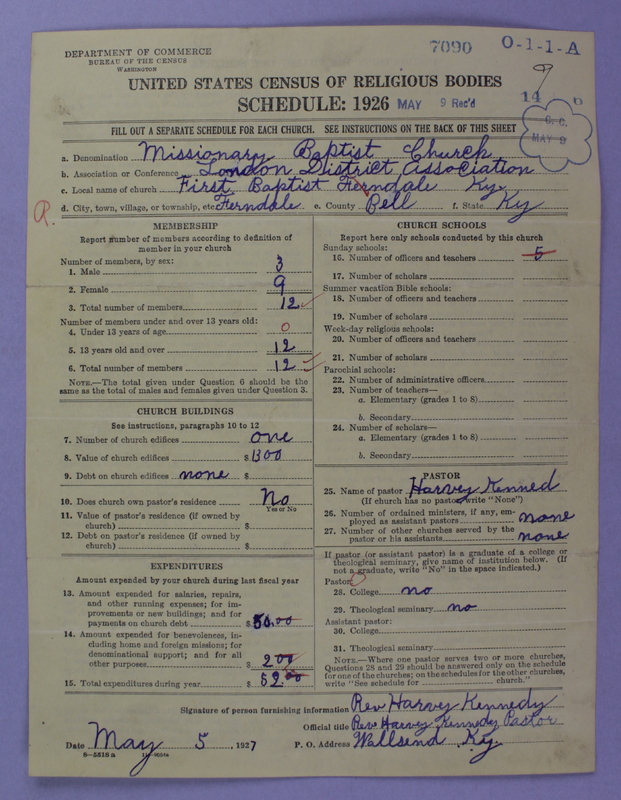 DEPARTMENT OF COMMERCE
BUREAU OF THE CENSUS
WASHINGTON
7090 O-1-1-A
9
UNITED STATES CENSUS OF RELIGIOUS BODIES
SCHEDULE: 1926 MAY 9 Rec'd 14
C. C.
MAY 9
FILL OUT A SEPARATE SCHEDULE FOR EACH CHURCH. SEE INSTRUCTIONS ON THE BACK OF THIS SHEET
a. Denomination Missionary Baptist Church
b. Association or Conference London District Association
c. Local name of church First Baptist Ferndale Ky.
d. City, town, village, or township, etc. Ferndale e. County Bell f. State Ky
R.
MEMBERSHIP
Report number of members according to definition of
member in your church
Number of members, by sex:
1. Male 3
2. Female 9
3. Total number of members 12
Number of members under and over 13 years old:
4. Under 13 years of age 0
5. 13 years old and over 12
6. Total number of members 12
NOTE.—The total given under Question 6 should be the
same as the total of males and females given under Question 3.
CHURCH BUILDINGS
See instructions, paragraphs 10 to 12
7. Number of church edifices one
8. Value of church edifices $ 1300
9. Debt on church edifices none $
10. Does church own pastor's residence No
Yes or No
11. Value of pastor's residence (if owned by
church) $
12. Debt on pastor's residence (if owned by
church) $
EXPENDITURES
Amount expended by your church during last fiscal year
13. Amount expended for salaries, repairs,
and other running expenses; for im-
provements or new buildings; and for
payments on church debt $ 50.00
14. Amount expended for benevolences,
including home and foreign missions; for
denominational support; and for all
other purposes $ 2 00
15. Total expenditures during year $ 52.00
CHURCH SCHOOLS
Report here only schools conducted by this church
Sunday schools:
16. Number of officers and teachers 5
17. Number of scholars
Summer vacation Bible schools:
18. Number of officers and teachers
19. Number of scholars
Week-day religious schools:
20. Number of officers and teachers
21. Number of scholars
Parochial schools:
22. Number of administrative officers
23. Number of teachers—
a. Elementary (grades 1 to 8)
b. Secondary
24. Number of scholars—
a. Elementary (grades 1 to 8)
b. Secondary
PASTOR
25. Name of pastor Harvey Kenned
(If church has no pastor, write "None")
26. Number of ordained ministers, if any, em-
ployed as assistant pastors none
27. Number of other churches served by the
pastor or his assistants none
If pastor (or assistant pastor) is a graduate of a college or
theological seminary, give name of institution below. (If
not a graduate, write "No" in the space indicated.)
Pastor:
28. College no
29. Theological seminary no
Assistant pastor:
30. College
31. Theological seminary
NOTE.—Where one pastor serves two or more churches,
Questions 28 and 29 should be answered only on the schedule
for one of the churches; on the schedules for the other churches,
write "See schedule for church."
Signature of person furnishing information Rev Harvey Kennedy
Official title Rev Harvey Kennedy Pastor
Date May 5, 1927 P. O. Address Wallsend Ky.
8—5518a